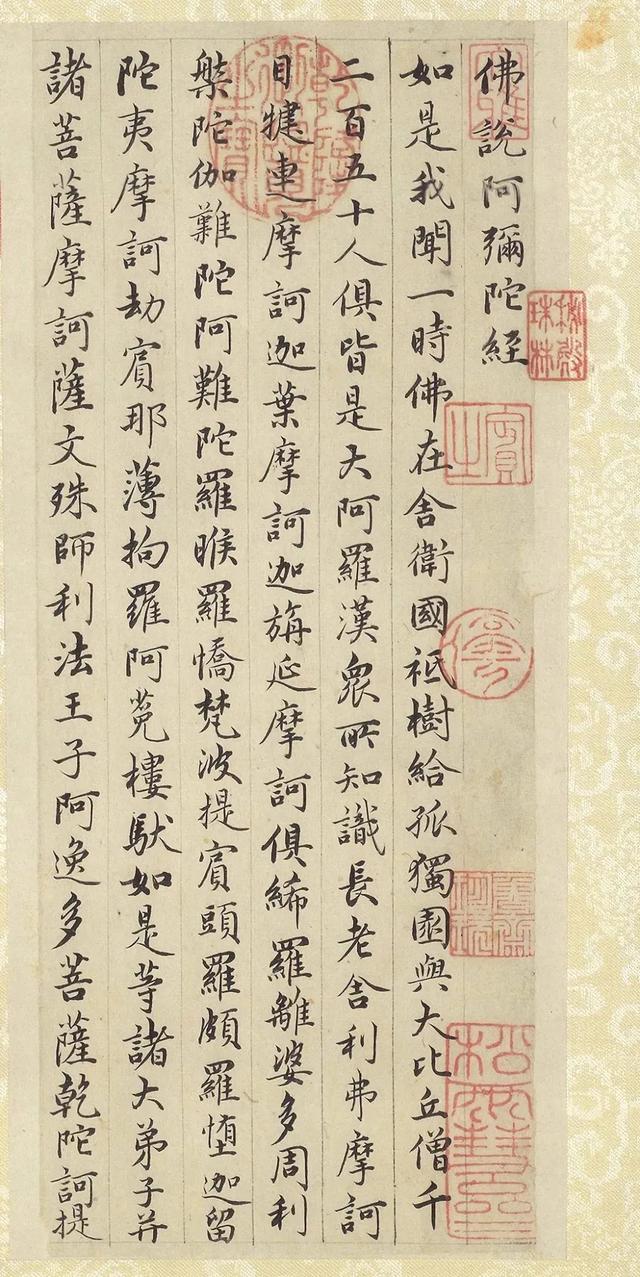 秘殿珠林
佛說阿彌陀經
如是我聞一時佛在舍衛國祇樹給孤獨園與大比丘僧千
二百五十人俱皆是大阿羅漢眾所知識長老舍利弗摩訶
目犍連摩訶迦葉摩訶迦旃延摩訶俱絺羅離婆多周利
槃陀伽難陀阿難陀羅睺羅憍梵波提賓頭羅頗羅堕迦留
陀夷摩訶劫賓那薄拘羅阿菟樓馱如是等諸大弟子并
諸菩薩摩訶薩文殊師利法王子阿逸多菩薩乾陀訶提